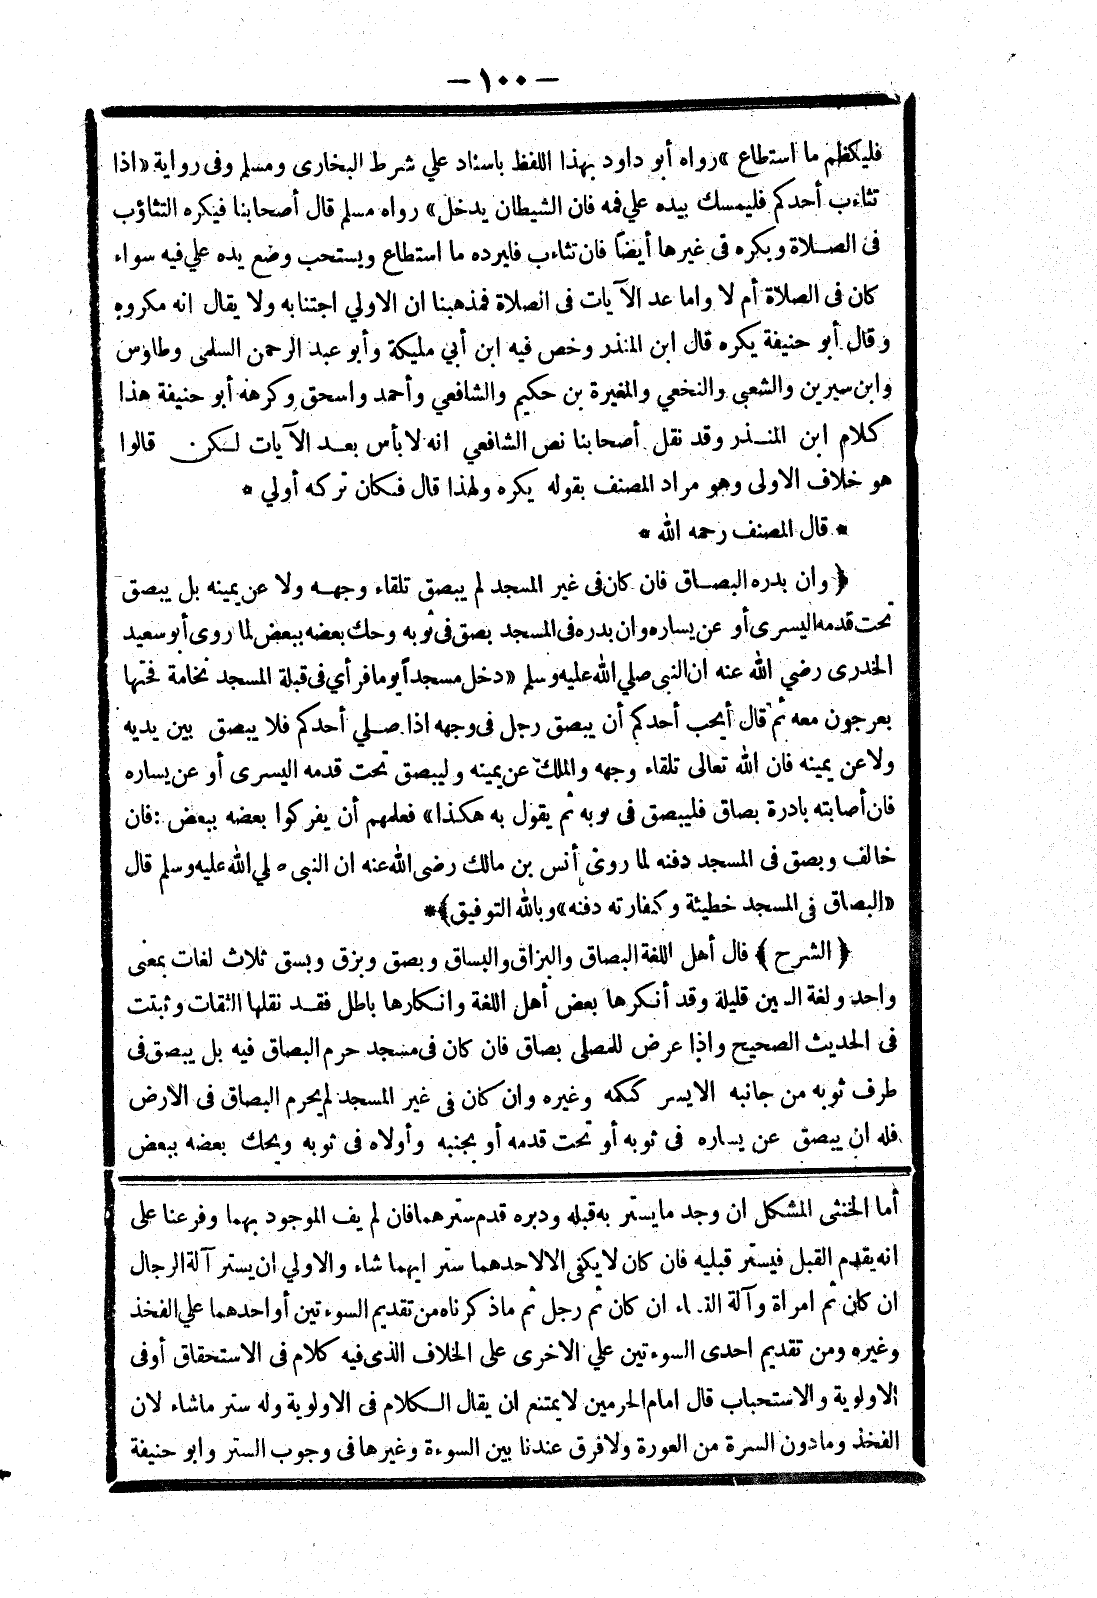 — ١٠٠ —
فليكظم ما استطاع »رواه أبو داود بهذا اللفظ باسناد علي شرط البخارى ومسلم وفى رواية «اذا
تثاءب أحدكم فليمسك بيده علي فمه فان الشيطان يدخل» رواه مسلم قال أصحابنا فيكره التثاؤب
فى الصلاة ويكره فى غيرها أيضاً فان تثاءب فليرده ما استطاع ويستحب وضع يده علي فيه سواء
كان فى الصلاة أم لا واما عد الآيات فى الصلاة فمذهبنا ان الاولي اجتنابه ولا يقال انه مكروه
وقال أبو حنيفة يكره قال ابن المنذر وخص فيه ابن أبي مليكة وأبو عبد الرحمن السلمى وطاوس
وابن سيرين والشعبى والنخعي والمغيرة بن حكيم والشافعي وأحمد واسحق وكرهه أبو حنيفة هذا
كلام ابن المنذر وقد نقل أصحابنا نص الشافعي انه لا بأس بعد الآيات لكن قالوا
هو خلاف الاولى وهو مراد المصنف بقوله يكره ولهذا قال فكان تركه أولي *
* قال المصنف رحمه الله *
﴿ وان بدره البصاق فان كان فى غير المسجد لم يبصق تلقاء وجهه ولا عن يمينه بل يبصق
تحت قدمه اليسرى أو عن يساره وان بدره فى المسجد بصق فى ثوبه وحك بعضه ببعض لما روى أبو سعيد
الخدرى رضي الله عنه ان النبى صلي الله عليه وسلم «دخل مسجداً يوما فرأي فى قبلة المسجد نخامة فحتها
بعرجون معه ثم قال أيحب أحدكم أن يبصق رجل فى وجهه اذا صلي أحدكم فلا يبصق بين يديه
ولا عن يمينه فان الله تعالى تلقاء وجهه والملك عن يمينه وليبصق تحت قدمه اليسرى أو عن يساره
فان أصابته بادرة بصاق فليبصق فى ثوبه ثم يقول به هكذا» فعلمهم أن يفركوا بعضه ببعض : فان
خالف وبصق فى المسجد دفنه لما روى أنس بن مالك رضى الله عنه ان النبى صلي الله عليه وسلم قال
«البصاق فى المسجد خطيئة وكفارته دفنه» وبالله التوفيق﴾*
﴿ الشرح ﴾ قال أهل اللغة البصاق والبزاق والبساق وبصق وبزق وبسق ثلاث لغات بمعنى
واحد ولغة السين قليلة وقد أنكرها بعض أهل اللغة وانكارها باطل فقد نقلها الثقات وثبتت
فى الحديث الصحيح واذا عرض للمصلى بصاق فان كان فى مسجد حرم البصاق فيه بل يبصق فى
طرف ثوبه من جانبه الايسر ككمه وغيره وان كان فى غير المسجد لم يحرم البصاق فى الارض
فله ان يبصق عن يساره فى ثوبه أو تحت قدمه أو بجنبه وأولاه فى ثوبه ويحك بعضه ببعض
أما الخنثى المشكل ان وجد ما يستر به قبله ودبره قدم سترهما فان لم يف الموجود بهما وفرعنا على
انه يقدم القبل فيستر قبليه فان كان لا يكفى الا لاحدهما ستر ايهما شاء والاولي ان يستر آلة الرجال
ان كان ثم امرأة وآلة النساء ان كان ثم رجل ثم ما ذكرناه من تقديم السوءتين أو احدهما علي الفخذ
وغيره ومن تقديم احدى السوءتين علي الاخرى على الخلاف الذى فيه كلام فى الاستحقاق أو فى
الاولوية والاستحباب قال امام الحرمين لا يمتنع ان يقال الكلام فى الاولوية وله ستر ما شاء لان
الفخذ وما دون السرة من العورة ولا فرق عندنا بين السوءة وغيرها فى وجوب الستر وابو حنيفة